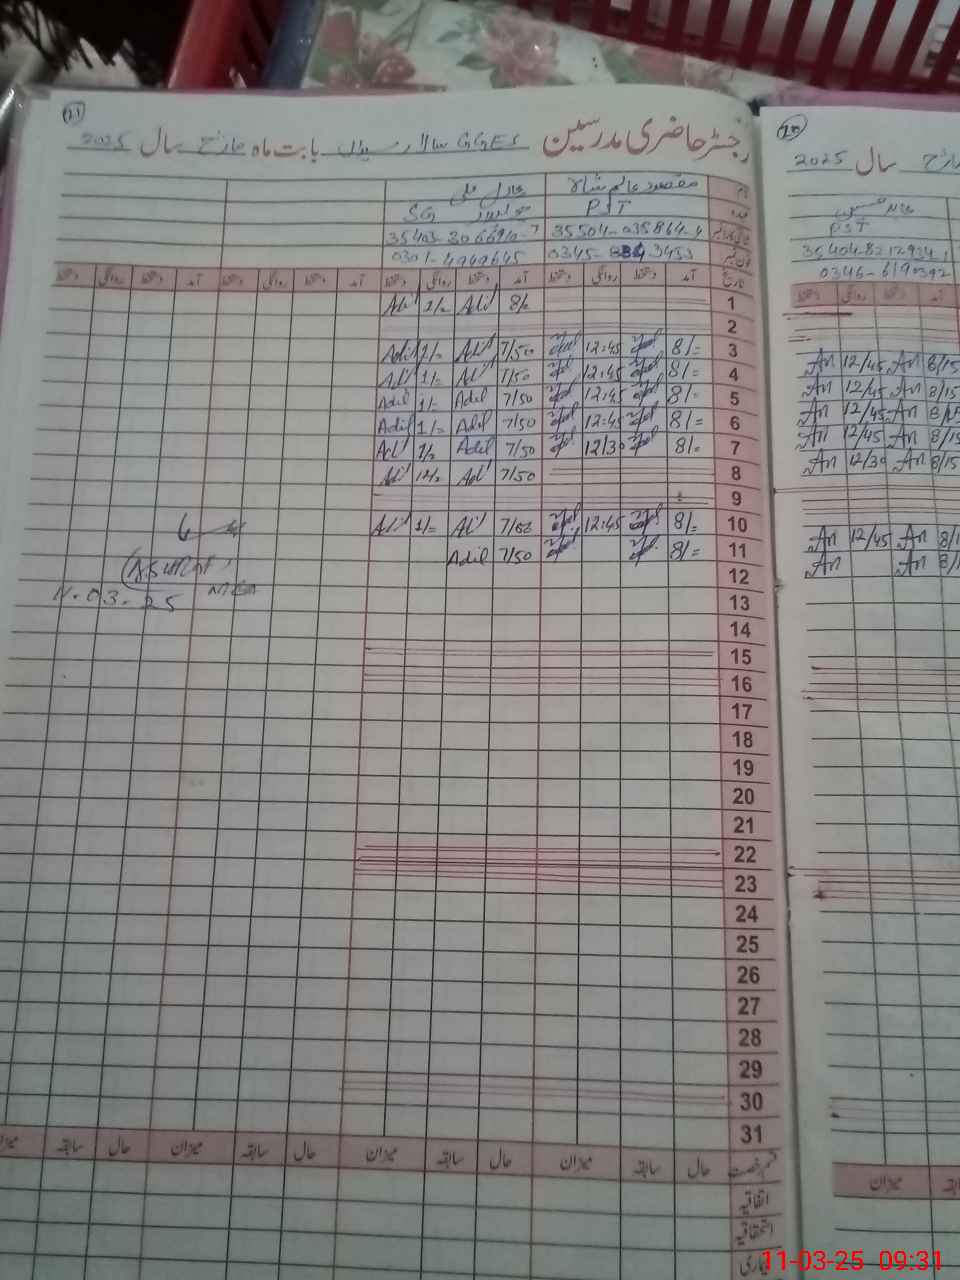 رجسٹر حاضری مدرسین GGES بابت ماہ مارچ سال 2025
21
نام مقصود عالم شاہ عادل علی
عہدہ PST SG
35504-035864-4 35403-3066910-7
0345- 3453 0301-4949645
تاریخ آمد دستخط روانگی دستخط آمد دستخط روانگی دستخط آمد دستخط روانگی دستخط آمد دستخط روانگی دستخط
1 8/= Adil 1/= Adil
2
3 8/= 12:45 7/50 Adil 1/= Adil
4 8/= 12:45 7/50 Adil 1/= Adil
5 8/= 12:45 7/50 Adil 1/= Adil
6 8/= 12:45 7/50 Adil 1/= Adil
7 8/= 12/30 7/50 Adil Adil
8 7/50 Adil Adil
9
10 8/= 12:45 Adil 1/= Adil
11 8/= 7/50 Adil
11.03.25
12
13
14
15
16
17
18
19
20
21
22
23
24
25
26
27
28
29
30
31
قسم رخصت حال سابقہ میزان حال سابقہ میزان حال سابقہ میزان حال سابقہ میزان
اتفاقیہ
استحقاقیہ
بیماری
سال 2025
PST
35404-8212934-1
0346-6190392
آمد دستخط روانگی دستخط
8/15 An 12/45 An
8/15 An 12/45 An
8/15 An 12/45 An
8/15 An 12/45 An
8/15 An 12/30 An
An 12/45 An
An An
میزان
11-03-25 09:31